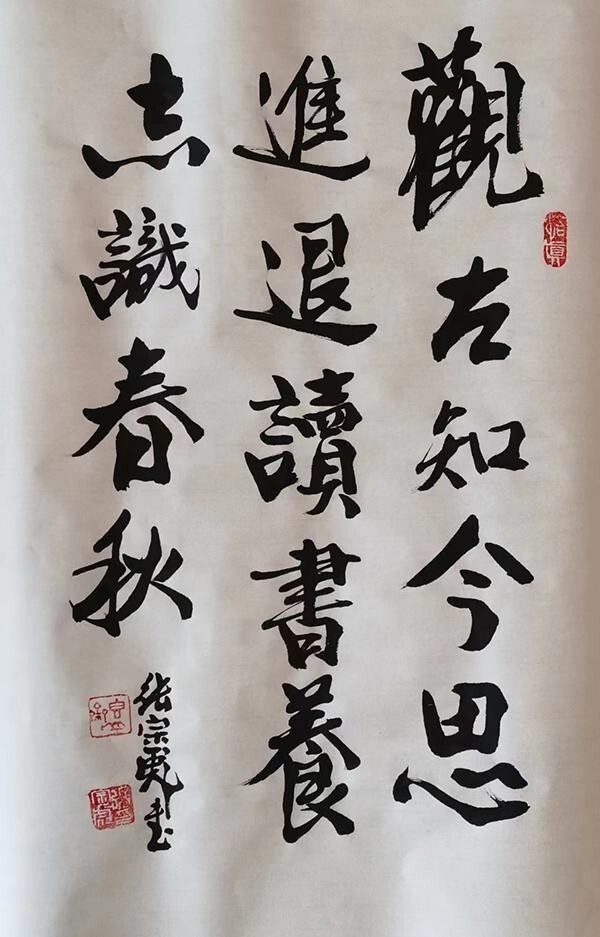 觀古知今思
進退讀書養
志識春秋
张宗书